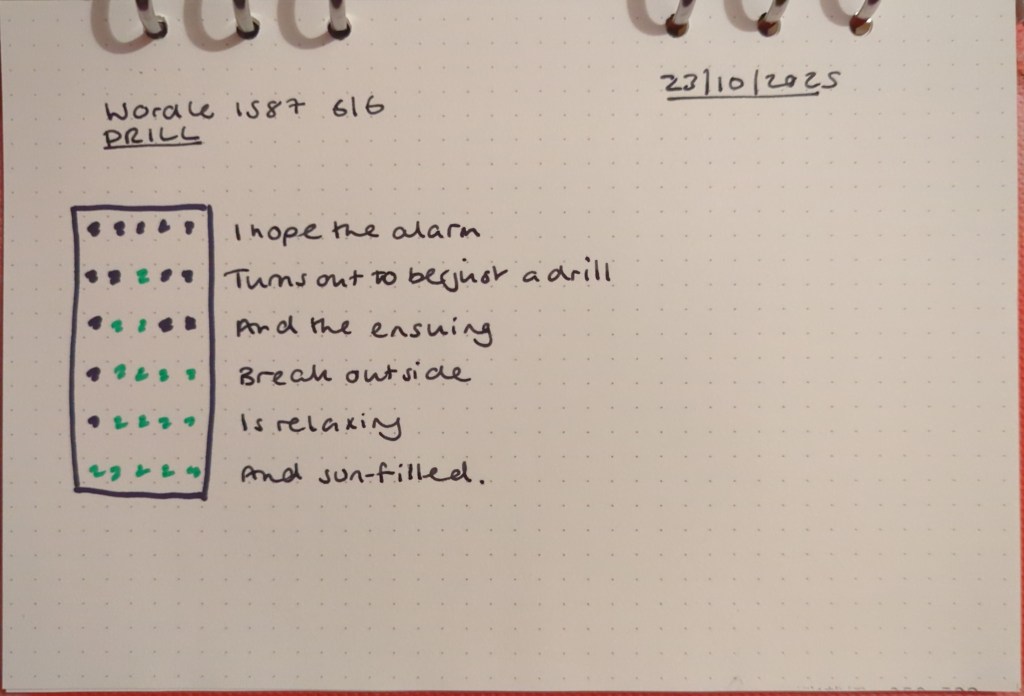 23/10/2025
Wordle 1587 6/6
DRILL
I hope the alarm
Turns out to be just a drill
And the ensuing
Break outside
Is relaxing
And sun-filled.